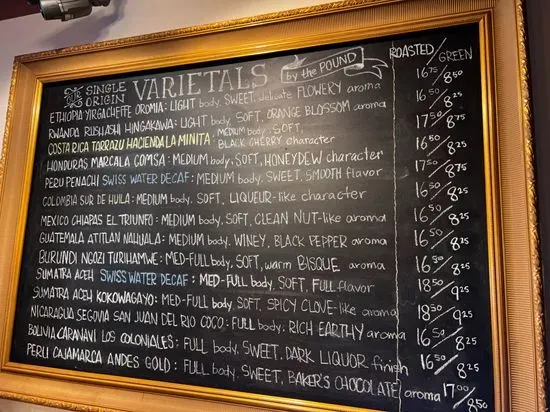 SINGLE ORIGIN VARIETALS by the POUND ROASTED/GREEN
ETHIOPIA YIRGACHEFFE OROMIA: LIGHT body, SWEET, delicate FLOWERY aroma 16.75/8.50
RWANDA RUSHASHI HINGAKAWA: LIGHT body, SOFT, ORANGE BLOSSOM aroma 16.50/8.25
COSTA RICA TARRAZU HACIENDA LA MINITA: MEDIUM body, SOFT, BLACK CHERRY character 17.50/8.75
HONDURAS MARCALA COMSA: MEDIUM body, SOFT, HONEYDEW character 16.50/8.25
PERU PENACHI SWISS WATER DECAF: MEDIUM body, SWEET, SMOOTH flavor 17.50/8.75
COLOMBIA SUR DE HUILA: MEDIUM body, SOFT, LIQUEUR-like character 16.50/8.25
MEXICO CHIAPAS EL TRIUNFO: MEDIUM body, SOFT, CLEAN NUT-like aroma 16.50/8.25
GUATEMALA ATITLAN NAHUALA: MEDIUM body, WINEY, BLACK PEPPER aroma 16.50/8.25
BURUNDI NGOZI TURIHAMWE: MED-FULL body, SOFT, warm BISQUE aroma 16.50/8.25
SUMATRA ACEH SWISS WATER DECAF: MED-FULL body, SOFT, FULL flavor 18.50/9.25
SUMATRA ACEH KOKOWAGAYO: MED-FULL body, SOFT, SPICY CLOVE-like aroma 18.50/9.25
NICARAGUA SEGOVIA SAN JUAN DEL RIO COCO: FULL body, RICH EARTHY aroma 16.50/8.25
BOLIVIA CARANAVI LOS COLONIALES: FULL body, SWEET, DARK LIQUOR finish 16.50/8.25
PERU CAJAMARCA ANDES GOLD: FULL body, SWEET, BAKER'S CHOCOLATE aroma 17.00/8.50